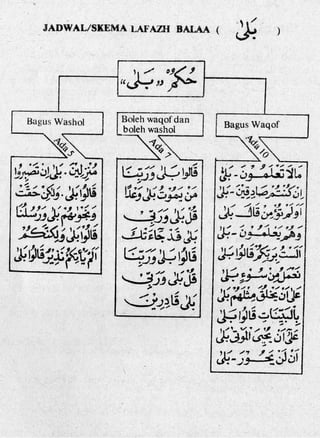 JADWAL/SKEMA LAFAZH BALAA ( بَلَى )
حُكْمُ ,, بَلَى ,,
Bagus Washol
Ada 5
مُنْزَلِيْنَ . بَلَى إِنْ تَصْبِرُوا
قَالُوا بَلَى . وَلٰكِنْ حَقَّتْ
وَنَجْوٰىهُمْ بَلَى وَرُسُلُنَا
قَالُوْا بَلَى وَلٰكِنَّكُمْ
اَلَمْ يَأْتِكُمْ نَذِيْرٌ قَالُوْا بَلَى
Boleh waqof dan
boleh washol
Ada 7
قَالُوا بَلَى وَرَبِّنَا
مَنْ يَمُوْتُ بَلَى وَعْدًا
قُلْ بَلَى وَرَبِّيْ
بَلَى قَدْ جَاءَتْكَ
قَالُوْا بَلَى وَرَبِّنَا
قُلْ بَلَى وَرَبِّيْ
بَلَى قَادِرِيْنَ
Bagus Waqof
Ada 10
مَالَا تَعْلَمُوْنَ - بَلَى
اِنْ كُنْتُمْ صَادِقِيْنَ - بَلَى
اَوَلَمْ تُؤْمِنْ قَالَ بَلَى
وَهُمْ يَعْلَمُوْنَ - بَلَى
اَلَسْتُ بِرَبِّكُمْ قَالُوْا بَلَى
نَعْمَلُ مِنْ سُوْءٍ بَلَى
عَلَى اَنْ يَخْلُقَ مِثْلَهُمْ بَلَى
بِالْبَيِّنَاتِ قَالُوْا بَلَى
عَلَى اَنْ يُحْيِيَ الْمَوْتٰى بَلَى
اَنْ لَنْ يَحُوْرَ - بَلَى